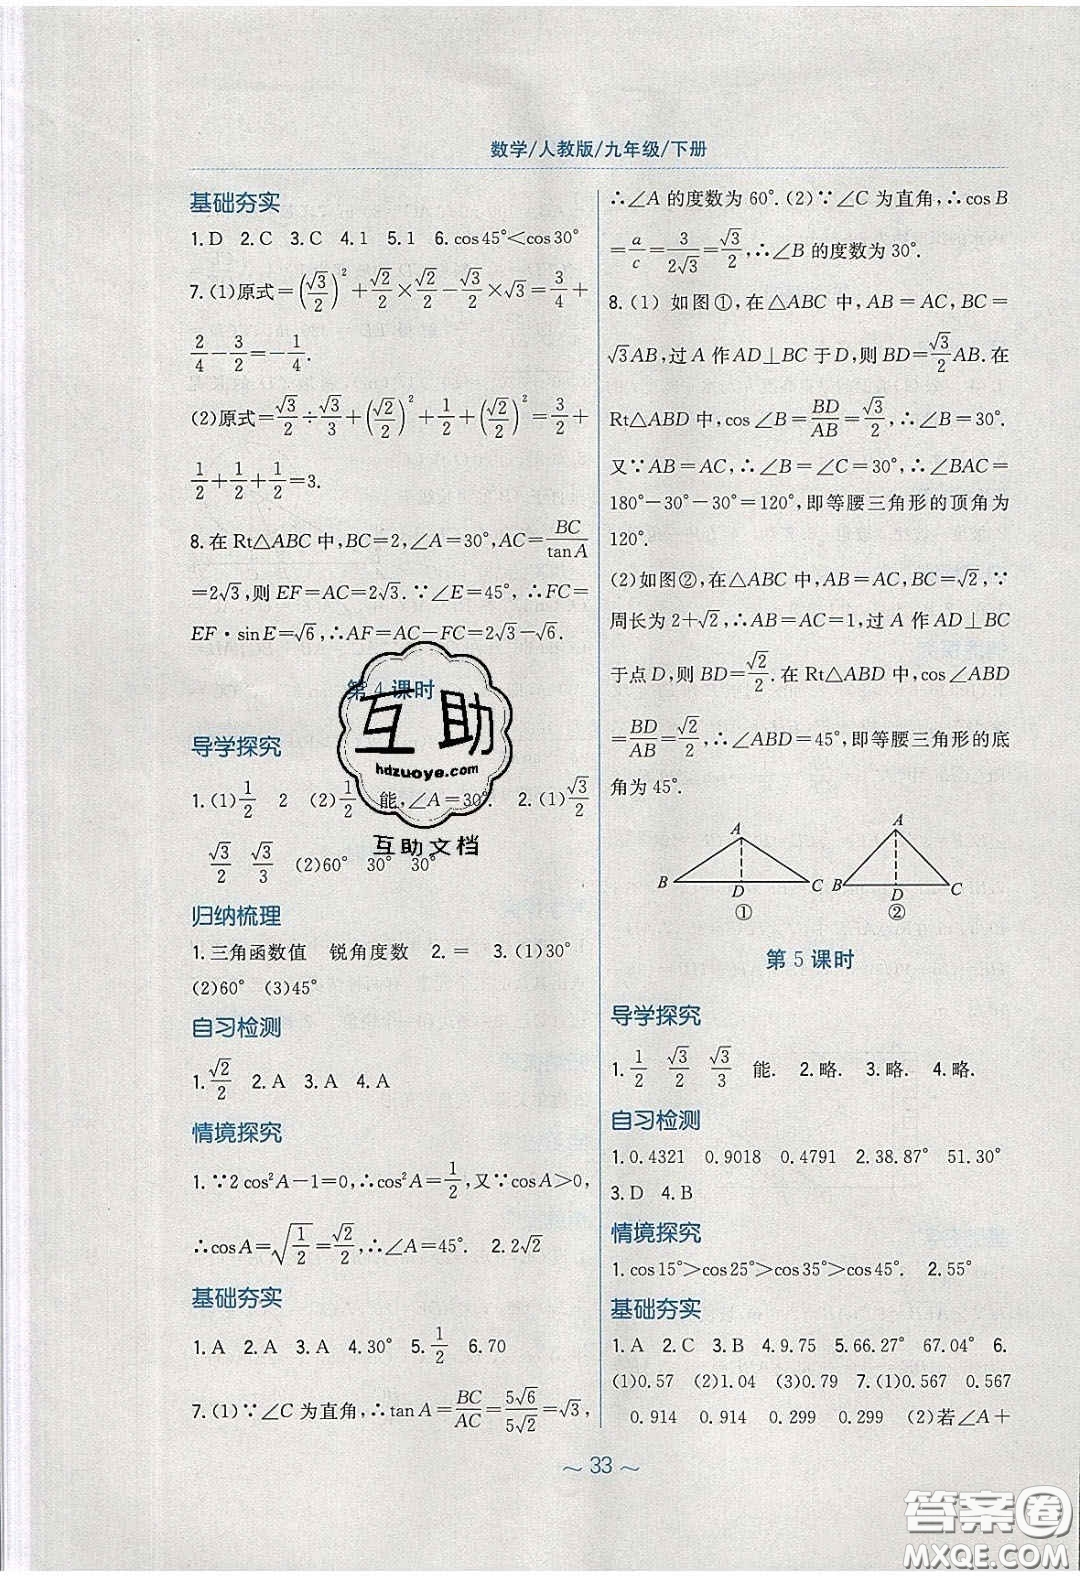 数学/人教版/九年级/下册
基础夯实
1.D 2.C 3.C 4.1 5.1 6.cos45°<cos30°
7.(1)原式=(√3/2)²+√2/2×√2/2-√3/2×√3=3/4+
2/4-3/2=-1/4.
(2)原式=√3/2÷√3/3+(√2/2)²+1/2+(√2/2)²=3/2+
1/2+1/2+1/2=3.
8.在Rt△ABC中,BC=2,∠A=30°,AC=BC/tanA
=2√3,则EF=AC=2√3.∵∠E=45°,∴FC=
EF·sinE=√6,∴AF=AC-FC=2√3-√6.
第4课时
导学探究
1.(1)1/2 2 (2)1/2 能,∠A=30°. 2.(1)√3/2
√3/2 √3/3 (2)60° 30° 30°
归纳梳理
1.三角函数值 锐角度数 2.= 3.(1)30°
(2)60° (3)45°
自习检测
1.√2/2 2.A 3.A 4.A
情境探究
1.∵2cos²A-1=0,∴cos²A=1/2,又∵cosA>0,
∴cosA=√(1/2)=√2/2,∴∠A=45°. 2.2√2
基础夯实
1.A 2.A 3.A 4.30° 5.1/2 6.70
7.(1)∵∠C为直角,∴tanA=BC/AC=5√6/5√2=√3,
∴∠A的度数为60°.(2)∵∠C为直角,∴cosB
=a/c=3/2√3=√3/2,∴∠B的度数为30°.
8.(1)如图①,在△ABC中,AB=AC,BC=
√3AB,过A作AD⊥BC于D,则BD=√3/2AB.在
Rt△ABD中,cos∠B=BD/AB=√3/2,∴∠B=30°.
又∵AB=AC,∴∠B=∠C=30°,∴∠BAC=
180°-30°-30°=120°,即等腰三角形的顶角为
120°.
(2)如图②,在△ABC中,AB=AC,BC=√2,∵
周长为2+√2,∴AB=AC=1,过A作AD⊥BC
于点D,则BD=√2/2.在Rt△ABD中,cos∠ABD
=BD/AB=√2/2,∴∠ABD=45°,即等腰三角形的底
角为45°.
A
B D C
①
A
B D C
②
第5课时
导学探究
1.1/2 √3/2 √3/3 能. 2.略. 3.略. 4.略.
自习检测
1.0.4321 0.9018 0.4791 2.38.87° 51.30°
3.D 4.B
情境探究
1.cos15°>cos25°>cos35°>cos45°. 2.55°
基础夯实
1.A 2.C 3.B 4.9.75 5.66.27° 67.04° 6.
(1)0.57 (2)1.04 (3)0.82 7.(1)0.567 0.567
0.914 0.914 0.299 0.299 (2)若∠A+
~ 33 ~
互助
hdzuoye.com
互助文档
答案圈
MXQE.COM